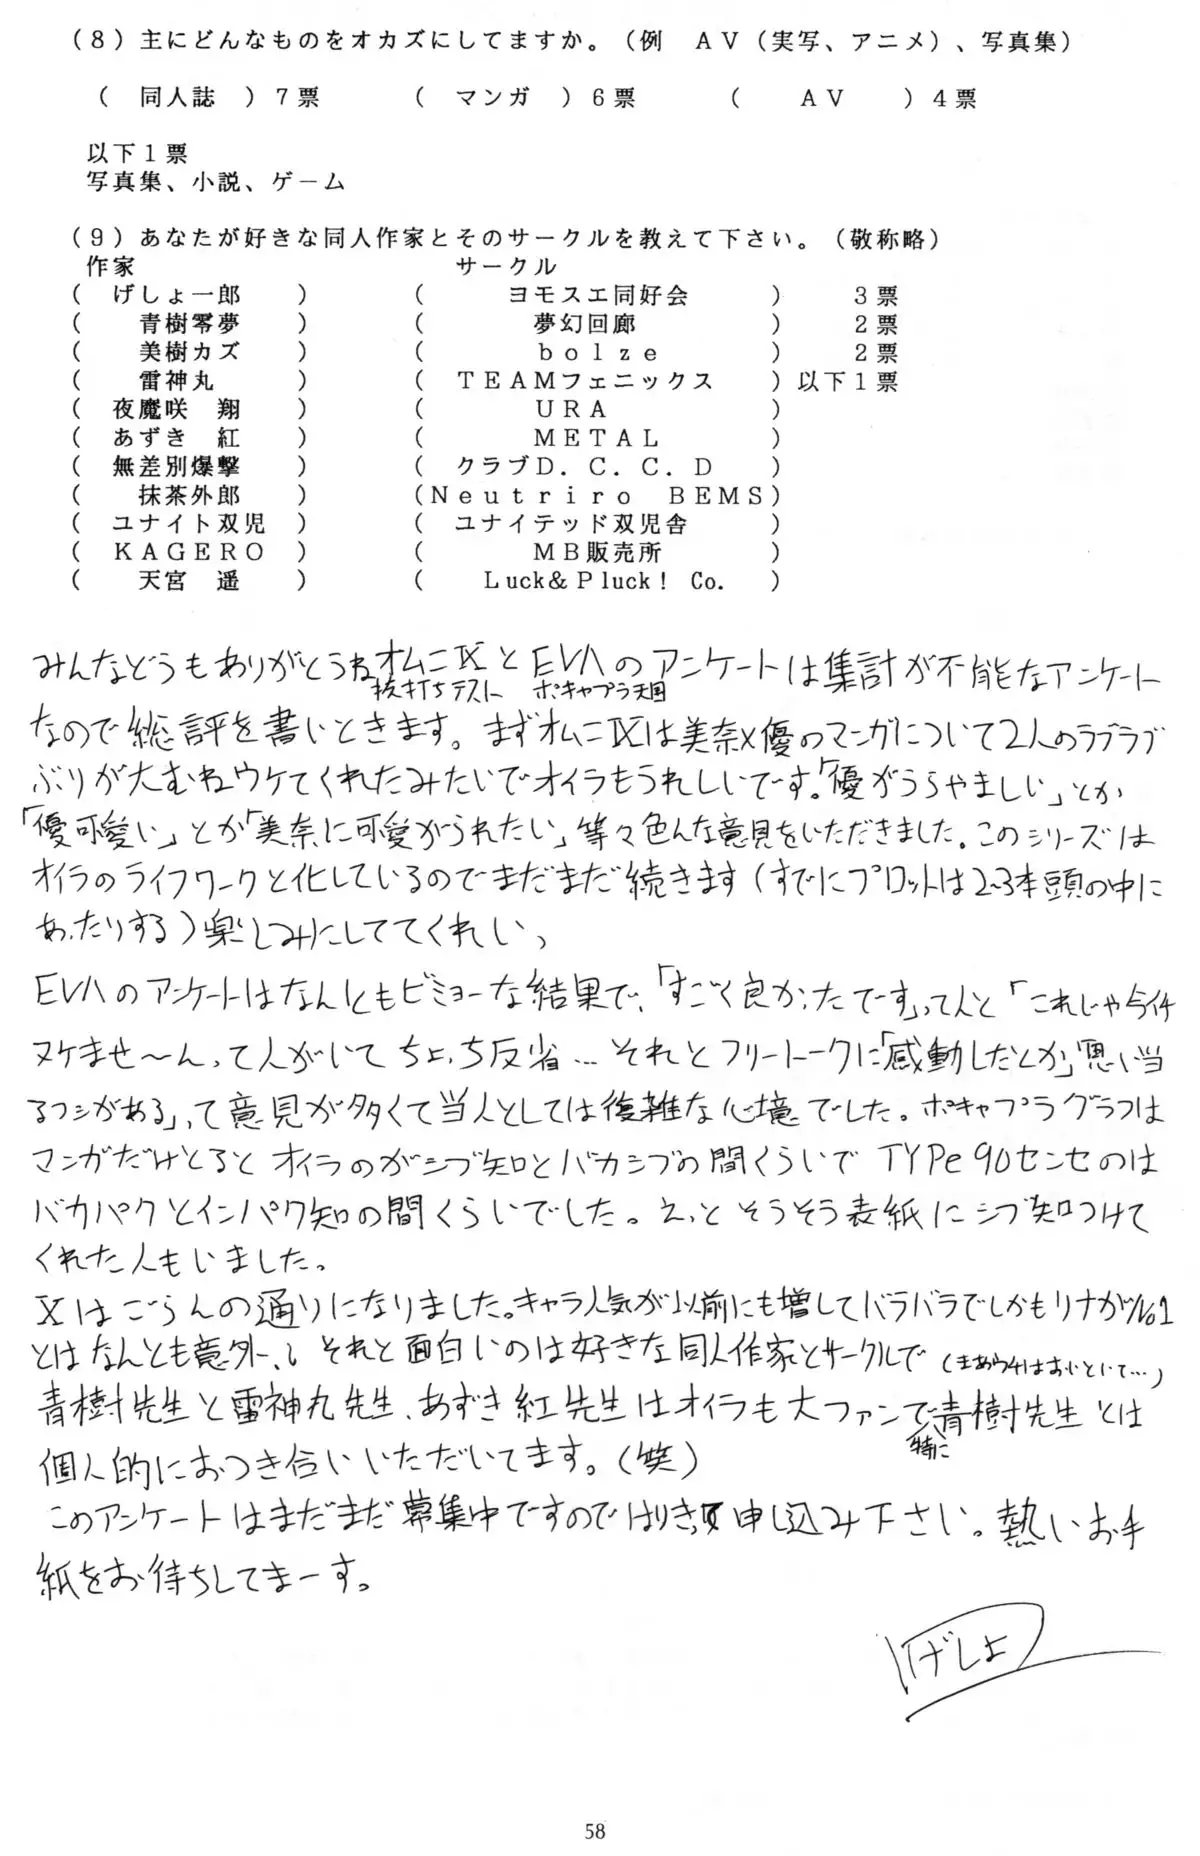 （8）主にどんなものをオカズにしてますか。（例　AV（実写、アニメ）、写真集）
（　同人誌　）7票　　（　マンガ　）6票　　（　AV　）4票
以下1票
写真集、小説、ゲーム
（9）あなたが好きな同人作家とそのサークルを教えて下さい。（敬称略）
作家　　サークル
（　げしょ一郎　）（　ヨモスエ同好会　）　3票
（　青樹零夢　）（　夢幻回廊　）　2票
（　美樹カズ　）（　bolze　）　2票
（　雷神丸　）（　TEAMフェニックス　）以下1票
（　夜魔咲　翔　）（　URA　）
（　あずき　紅　）（　METAL　）
（　無差別爆撃　）（　クラブD．C．C．D　）
（　抹茶外郎　）（Neutriro　BEMS）
（　ユナイト双児　）（　ユナイテッド双児舎　）
（　KAGERO　）（　MB販売所　）
（　天宮　遥　）（　Luck&Pluck! Co.　）
みんなどうもありがとうねオムニⅨとEVAのアンケートは集計が不能なアンケート
抜打ちテスト　ポキャプラ天国
なので総評を書いときます。まずオムニⅨは美奈×優のマンガについて2人のラブラブ
ぶりが大むねウケてくれたみたいでオイラもうれしいです。「優がうらやましい」とか
「優可愛い」とか「美奈に可愛がられたい」等々色んな意見をいただきました。このシリーズは
オイラのライフワークと化しているのでまだまだ続きます（すでにプロットは2~3本頭の中に
あったりする）楽しみにしててくれい、
EVAのアンケートはなんともビミョーな結果で、「すごく良かったです」って人と「これじゃ今イチ
ヌケませ〜ん」って人がいてちょっち反省…それとフリートークに「感動したとか」「思い当
るフシがある」って意見が多くて当人としては複雑な心境でした。ポキャプラグラフは
マンガだけとるとオイラのがシブ知とバカシブの間くらいでTYPe90センセのは
バカパクとインパク知の間くらいでした。えっとそうそう表紙にシブ知つけて
くれた人もいました。
Ⅹはごらんの通りになりました。キャラ人気が以前にも増してバラバラでしかもリナがNo1
とはなんとも意外、、それと面白いのは好きな同人作家とサークルで（まあウチはおいといて…）
青樹先生と雷神丸先生、あずき紅先生はオイラも大ファンで青樹先生とは
特に
個人的におつき合いいただいてます。（笑）
このアンケートはまだまだ募集中ですのではりきって申し込み下さい。熱いお手
紙をお待ちしてまーす。
げしょ
58